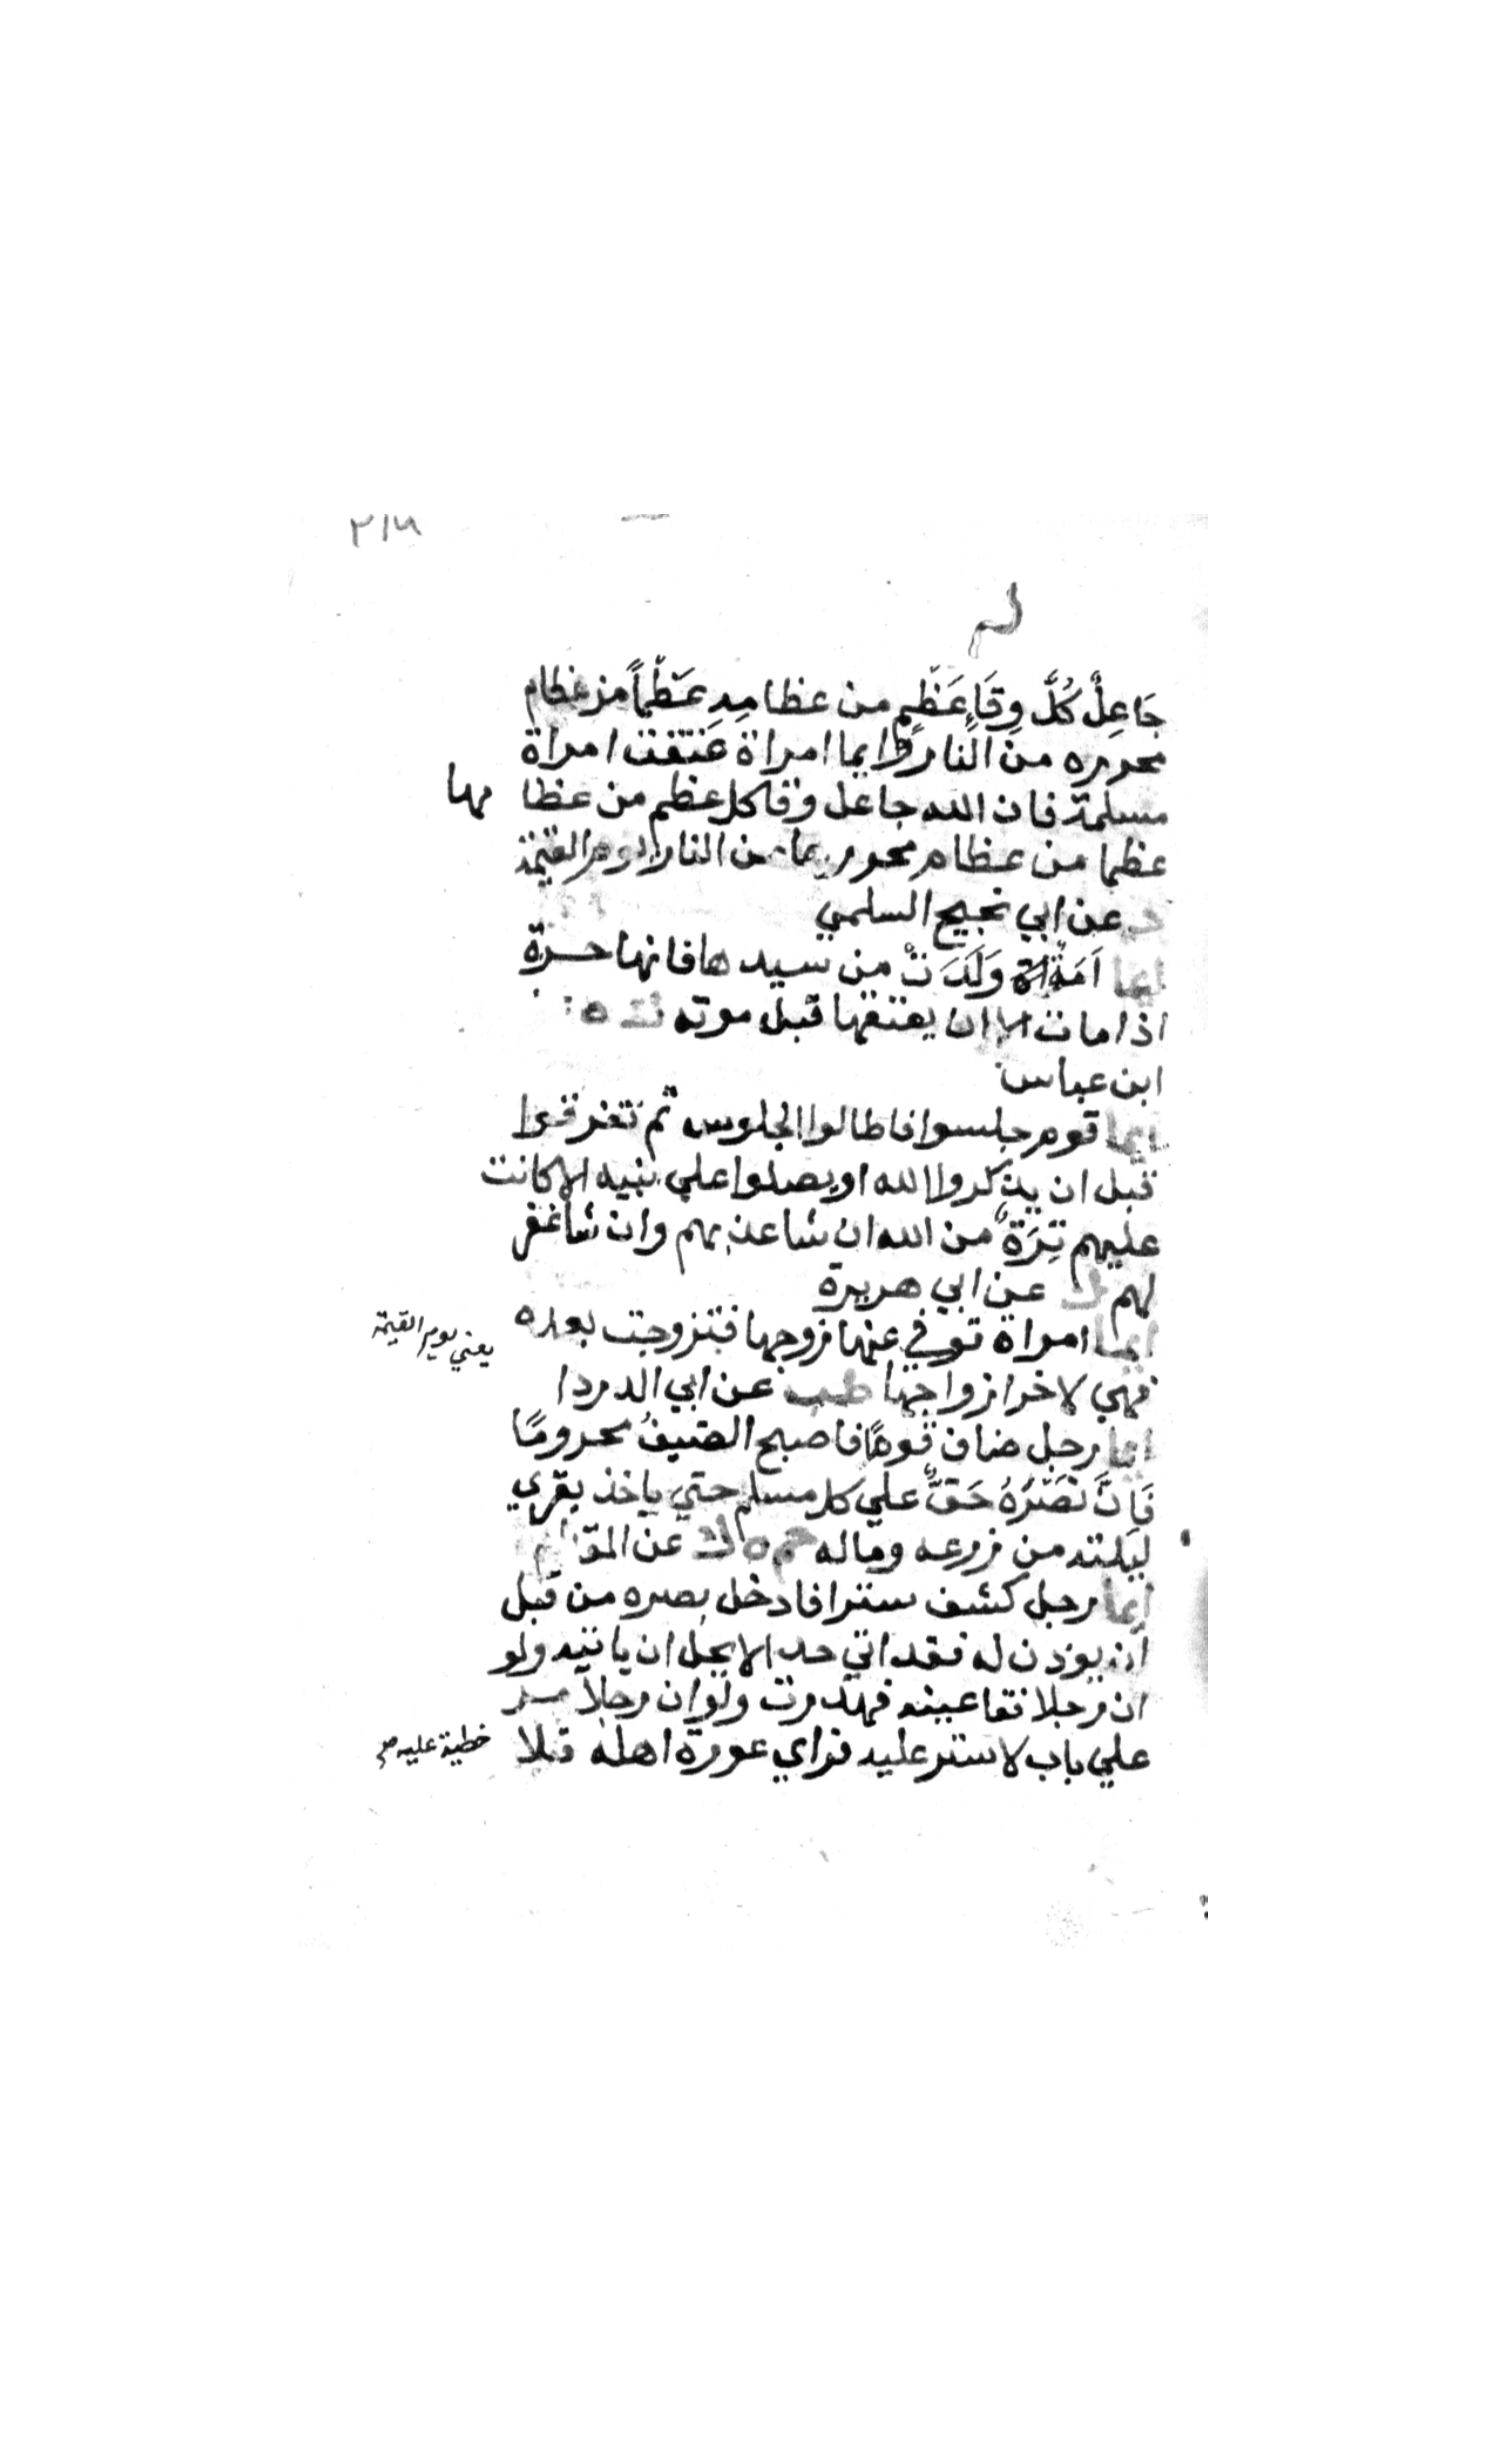 ٢١٨
جَاعِلٌ كُلَّ وِقَاءِ عَظْمٍ من عظامه عَظْماً من عظام
محرره من النار وايما امراة عتقت امراة
مسلمة فان الله جاعل وقا كل عظم من عظامها
عظما من عظام محررتها من النار يوم القيمة
د عن ابي نجيح السلمي
ايما اَمَةٍ وَلَدَتْ من سيدها فانها حرة
اذا مات الا ان يعتقها قبل موته ه ك عن
ابن عباس
ايما قوم جلسوا فاطالوا الجلوس ثم تفرقوا
قبل ان يذكروا الله او يصلوا علي نبيه الا كانت
عليهم تِرَةٌ من الله ان شا عذبهم وان شا غفر
لهم ك عن ابي هريرة
ايما امراة توفي عنها زوجها فتزوجت بعده
يعني يوم القيمة
فهي لاخر ازواجها طب عن ابي الدردا
ايما رجل ضاف قوماً فاصبح الضيفُ محرومًا
فَاِنَّ نَصْرَهُ حَقٌّ علي كل مسلم حتي ياخذ بقري
ليلته من زرعه وماله حم د ك عن المقدام
ايما رجل كشف سترا فادخل بصره من قبل
ان يوذن له فقد اتي حدا لا يحل ان ياتيه ولو
ان رجلا فقا عينه لهدرت ولو ان رجلا مر
علي باب لا ستر عليه فراي عورة اهله فلا
خطية عليه صح